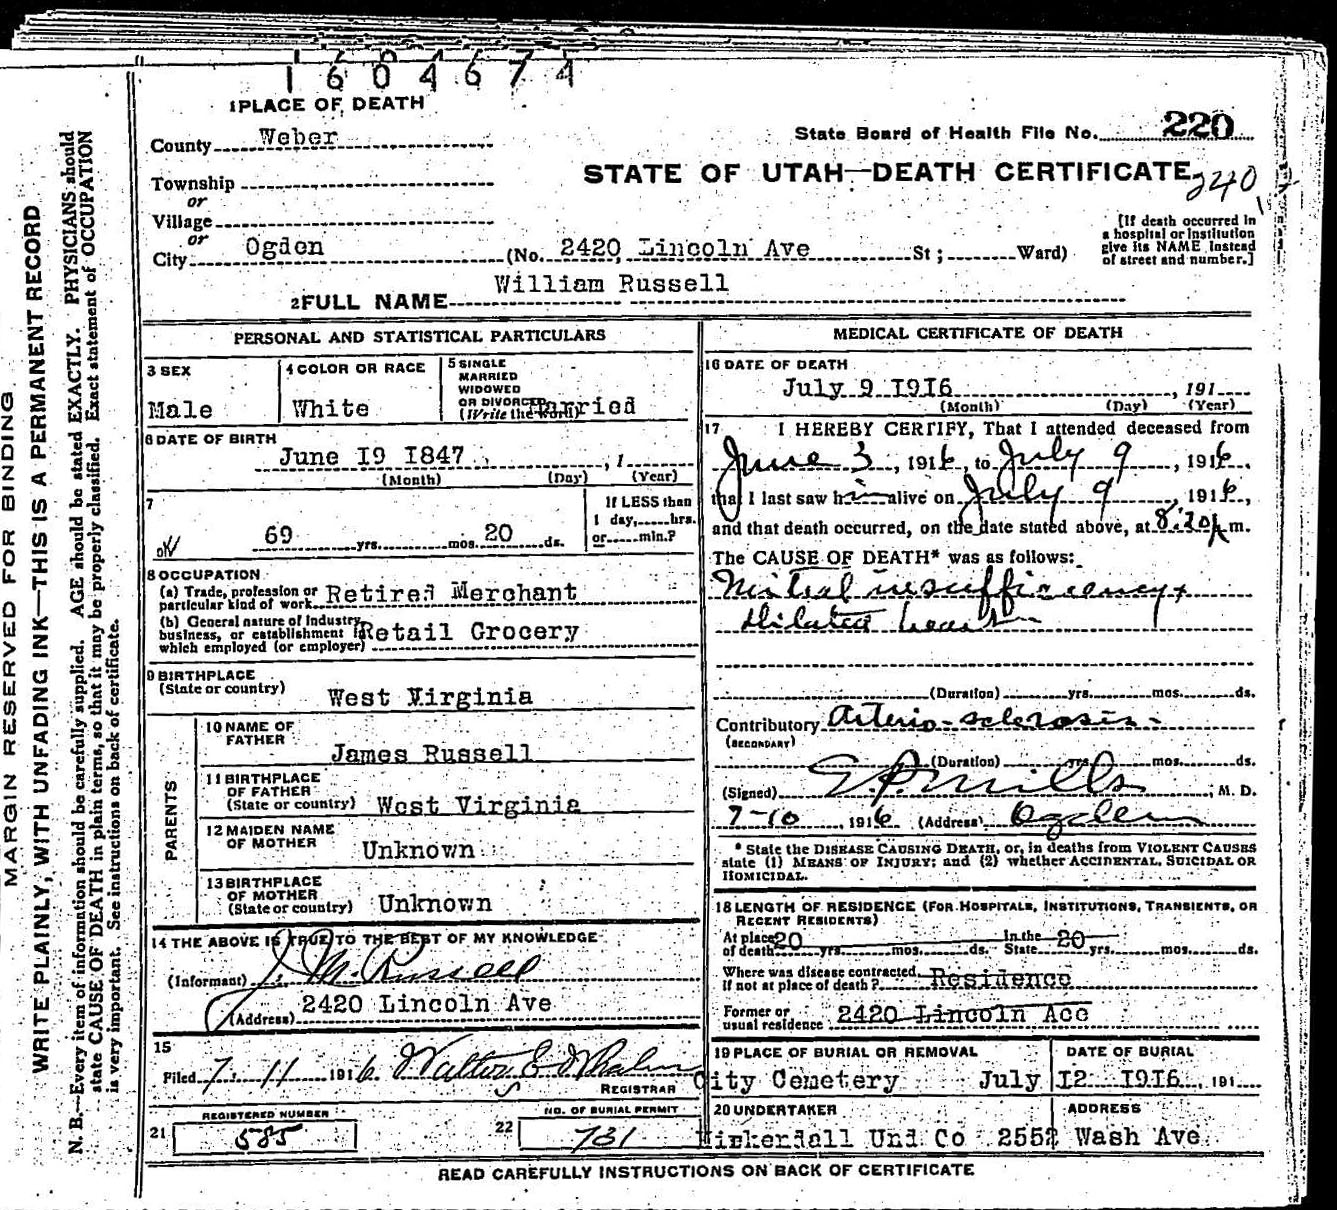 1604674
1 PLACE OF DEATH
County Weber
State Board of Health File No. 220
STATE OF UTAH—DEATH CERTIFICATE
240
Township
or
Village
or
City Ogden (No. 2420 Lincoln Ave St; Ward)
[If death occurred in
a hospital or institution
give its NAME instead
of street and number.]
William Russell
2 FULL NAME
PERSONAL AND STATISTICAL PARTICULARS
3 SEX
Male
4 COLOR OR RACE
White
5 SINGLE
MARRIED
WIDOWED
OR DIVORCED
(Write the word)
Married
6 DATE OF BIRTH
June I9 I847 , 1
(Month) (Day) (Year)
7
69 yrs. mos. 20 ds.
If LESS than
1 day, hrs.
or min.?
8 OCCUPATION
(a) Trade, profession or
particular kind of work Retired Merchant
(b) General nature of Industry,
business, or establishment in
which employed (or employer) Retail Grocery
9 BIRTHPLACE
(State or country) West Virginia
PARENTS
10 NAME OF
FATHER
James Russell
11 BIRTHPLACE
OF FATHER
(State or country) West Virginia
12 MAIDEN NAME
OF MOTHER
Unknown
13 BIRTHPLACE
OF MOTHER
(State or country) Unknown
14 THE ABOVE IS TRUE TO THE BEST OF MY KNOWLEDGE
(Informant) J. M. Russell
(Address) 2420 Lincoln Ave
15
Filed 7. 11 1916. Walter E Whalen
REGISTRAR
REGISTERED NUMBER
21 585
NO. OF BURIAL PERMIT
22 731
MEDICAL CERTIFICATE OF DEATH
16 DATE OF DEATH
July 9 I9I6 , 191
(Month) (Day) (Year)
17 I HEREBY CERTIFY, That I attended deceased from
June 3, 1916, to July 9, 1916.
that I last saw him alive on July 9, 1916,
and that death occurred, on the date stated above, at 8:30 p m.
The CAUSE OF DEATH* was as follows:
Mitral insufficiency +
dilated heart
(Duration) yrs. mos. ds.
Contributory arterio-sclerosis-
(SECONDARY)
(Duration) yrs. mos. ds.
(Signed) E. P. Mills, M. D.
7-10, 1916 (Address) Ogden
* State the DISEASE CAUSING DEATH, or, in deaths from VIOLENT CAUSES
state (1) MEANS OF INJURY; and (2) whether ACCIDENTAL, SUICIDAL OR
HOMICIDAL.
18 LENGTH OF RESIDENCE (FOR HOSPITALS, INSTITUTIONS, TRANSIENTS, OR
RECENT RESIDENTS)
At place
of death 20 yrs. mos. ds. In the State 20 yrs. mos. ds.
Where was disease contracted,
if not at place of death? Residence
Former or
usual residence 2420 Lincoln Ace
19 PLACE OF BURIAL OR REMOVAL
City Cemetery
DATE OF BURIAL
July I2 I9I6, 191
20 UNDERTAKER
Kirkendall Und Co
ADDRESS
2552 Wash Ave.
READ CAREFULLY INSTRUCTIONS ON BACK OF CERTIFICATE
MARGIN RESERVED FOR BINDING
WRITE PLAINLY, WITH UNFADING INK—THIS IS A PERMANENT RECORD
N. B.—Every item of information should be carefully supplied. AGE should be stated EXACTLY. PHYSICIANS should
state CAUSE OF DEATH in plain terms, so that it may be properly classified. Exact statement of OCCUPATION
is very important. See instructions on back of certificate.